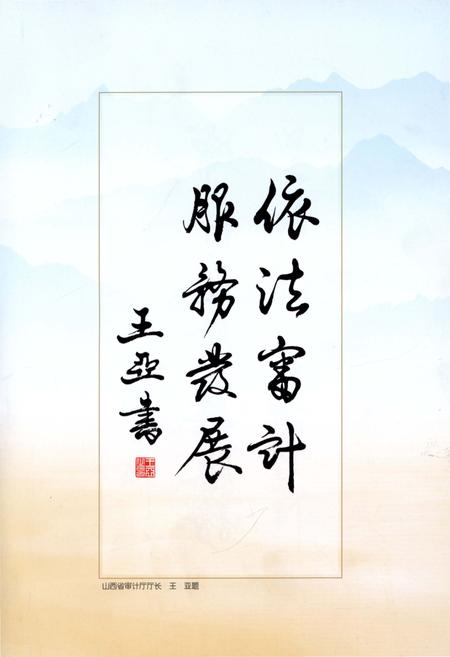 依法審計
服務發展
王亞書
山西省审计厅厅长 王 亚题